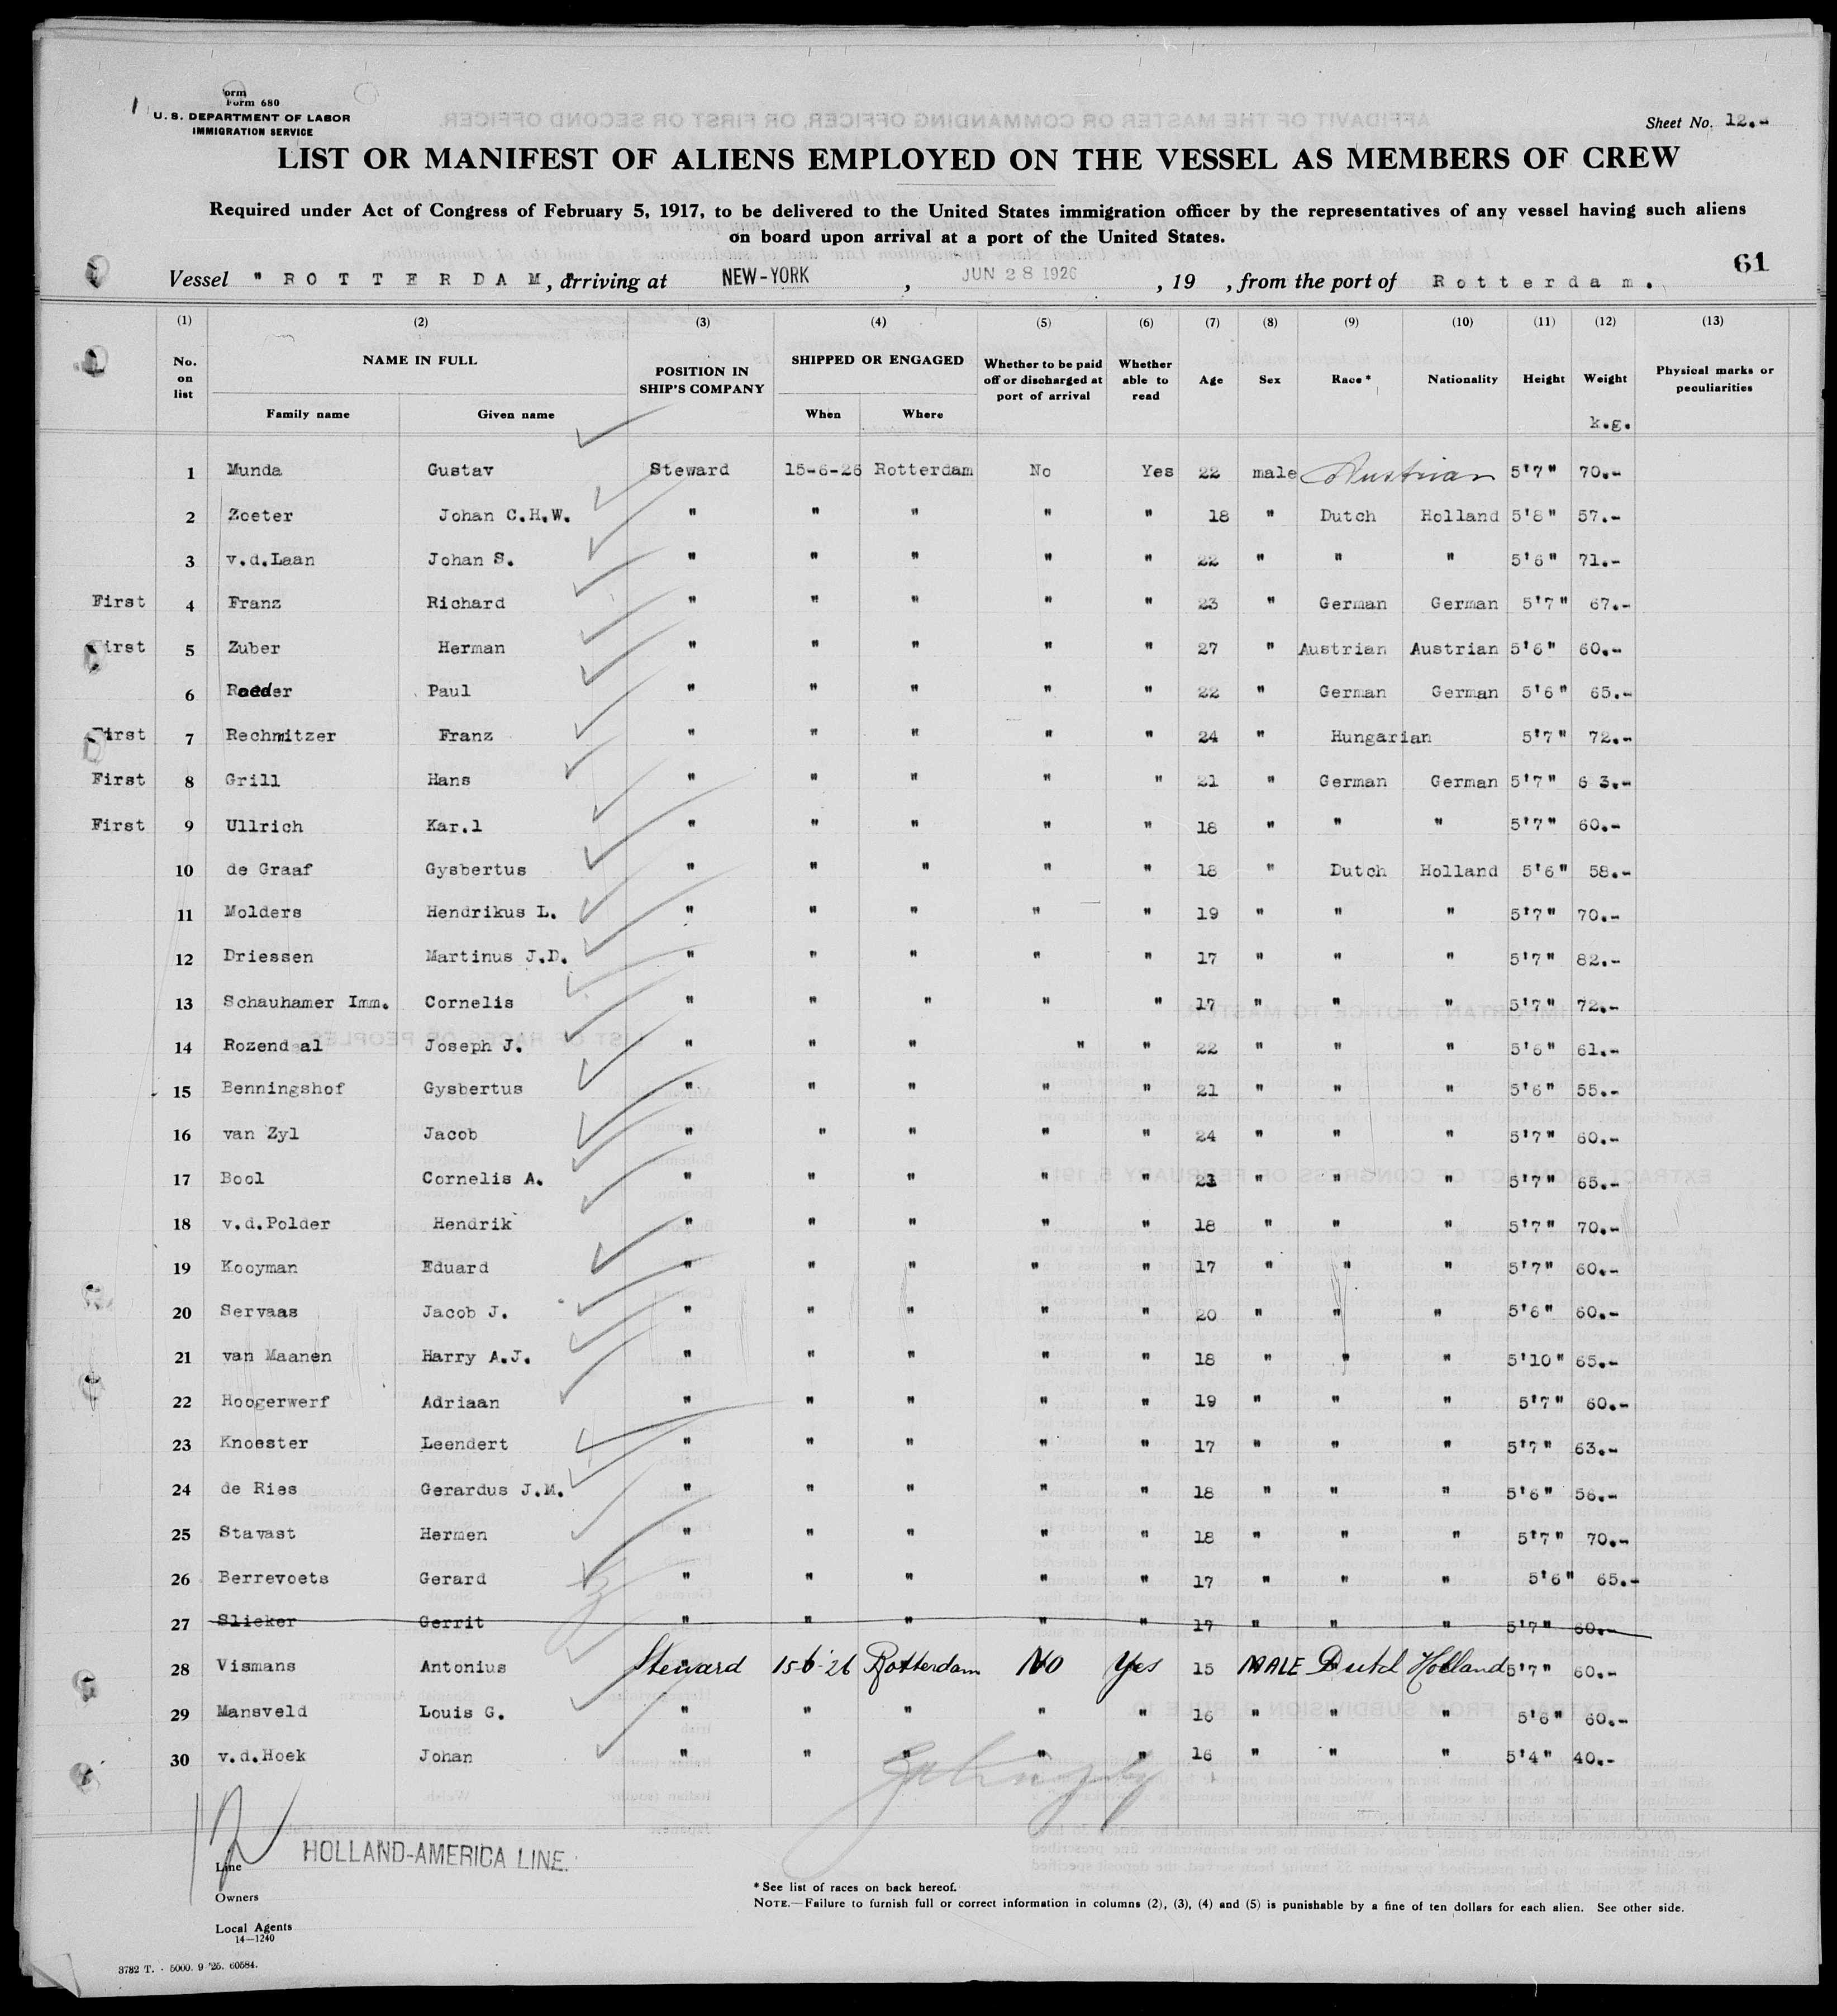 Form 680
U. S. DEPARTMENT OF LABOR
IMMIGRATION SERVICE
Sheet No. 12.-
LIST OR MANIFEST OF ALIENS EMPLOYED ON THE VESSEL AS MEMBERS OF CREW
Required under Act of Congress of February 5, 1917, to be delivered to the United States immigration officer by the representatives of any vessel having such aliens
on board upon arrival at a port of the United States.
61
Vessel " ROTTERDAM", arriving at NEW-YORK, JUN 28 1926, 19 , from the port of Rotterdam.
(1) (2) (3) (4) (5) (6) (7) (8) (9) (10) (11) (12) (13)
No. on list NAME IN FULL POSITION IN SHIP'S COMPANY SHIPPED OR ENGAGED Whether to be paid off or discharged at port of arrival Whether able to read Age Sex Race* Nationality Height Weight Physical marks or peculiarities
Family name Given name When Where k.g.
1 Munda Gustav Steward 15-6-26 Rotterdam No Yes 22 male Austrian 5'7" 70.-
2 Zoeter Johan C.H.W. " " " " " 18 " Dutch Holland 5'8" 57.-
3 v.d.Laan Johan S. " " " " " 22 " " " 5'6" 71.-
First 4 Franz Richard " " " " " 23 " German German 5'7" 67.-
First 5 Zuber Herman " " " " " 27 " Austrian Austrian 5'6" 60.-
6 Raeder Paul " " " " " 22 " German German 5'6" 65.-
First 7 Rechnitzer Franz " " " " " 24 " Hungarian 5'7" 72.-
First 8 Grill Hans " " " " " 21 " German German 5'7" 6 3.-
First 9 Ullrich Kar.l " " " " " 18 " " " 5'7" 60.-
10 de Graaf Gysbertus " " " " " 18 " Dutch Holland 5'6" 58.-
11 Molders Hendrikus L. " " " " " 19 " " " 5'7" 70.-
12 Driessen Martinus J.D. " " " " " 17 " " " 5'7" 82.-
13 Schauhamer Imm. Cornelis " " " " " 17 " " " 5'7" 72.-
14 Rozendaal Joseph J. " " " " " 22 " " " 5'6" 61.-
15 Benningshof Gysbertus " " " " " 21 " " " 5'6" 55.-
16 van Zyl Jacob " " " " " 24 " " " 5'7" 60.-
17 Bool Cornelis A. " " " " " " " " 5'7" 65.-
18 v.d.Polder Hendrik " " " " " 18 " " " 5'7" 70.-
19 Kooyman Eduard " " " " " 17 " " " 5'7" 60.-
20 Servaas Jacob J. " " " " " 20 " " " 5'6" 60.-
21 van Maanen Harry A.J. " " " " " 18 " " " 5'10" 65.-
22 Hoogerwerf Adriaan " " " " " 19 " " " 5'7" 60.-
23 Knoester Leendert " " " " " 17 " " " 5'7" 63.-
24 de Ries Gerardus J.M. " " " " " 18 " " " 5'6" 56.-
25 Stavast Hermen " " " " " 18 " " " 5'7" 70.-
26 Berrevoets Gerard " " " " " 17 " " " 5'6" 65.-
27 Slieker Gerrit " " " " " 17 " " " 5'7" 60.-
28 Vismans Antonius Steward 15-6-26 Rotterdam No Yes 15 MALE Dutch Holland 5'7" 60.-
29 Mansveld Louis G. " " " " " 16 " " " 5'6" 60.-
30 v.d.Hoek Johan " " " " " 16 " " " 5'4" 40.-
Line HOLLAND-AMERICA LINE.
Owners
Local Agents
14—1240
* See list of races on back hereof.
NOTE.—Failure to furnish full or correct information in columns (2), (3), (4) and (5) is punishable by a fine of ten dollars for each alien. See other side.
3782 T. - 5000. 9-'25. 60584.